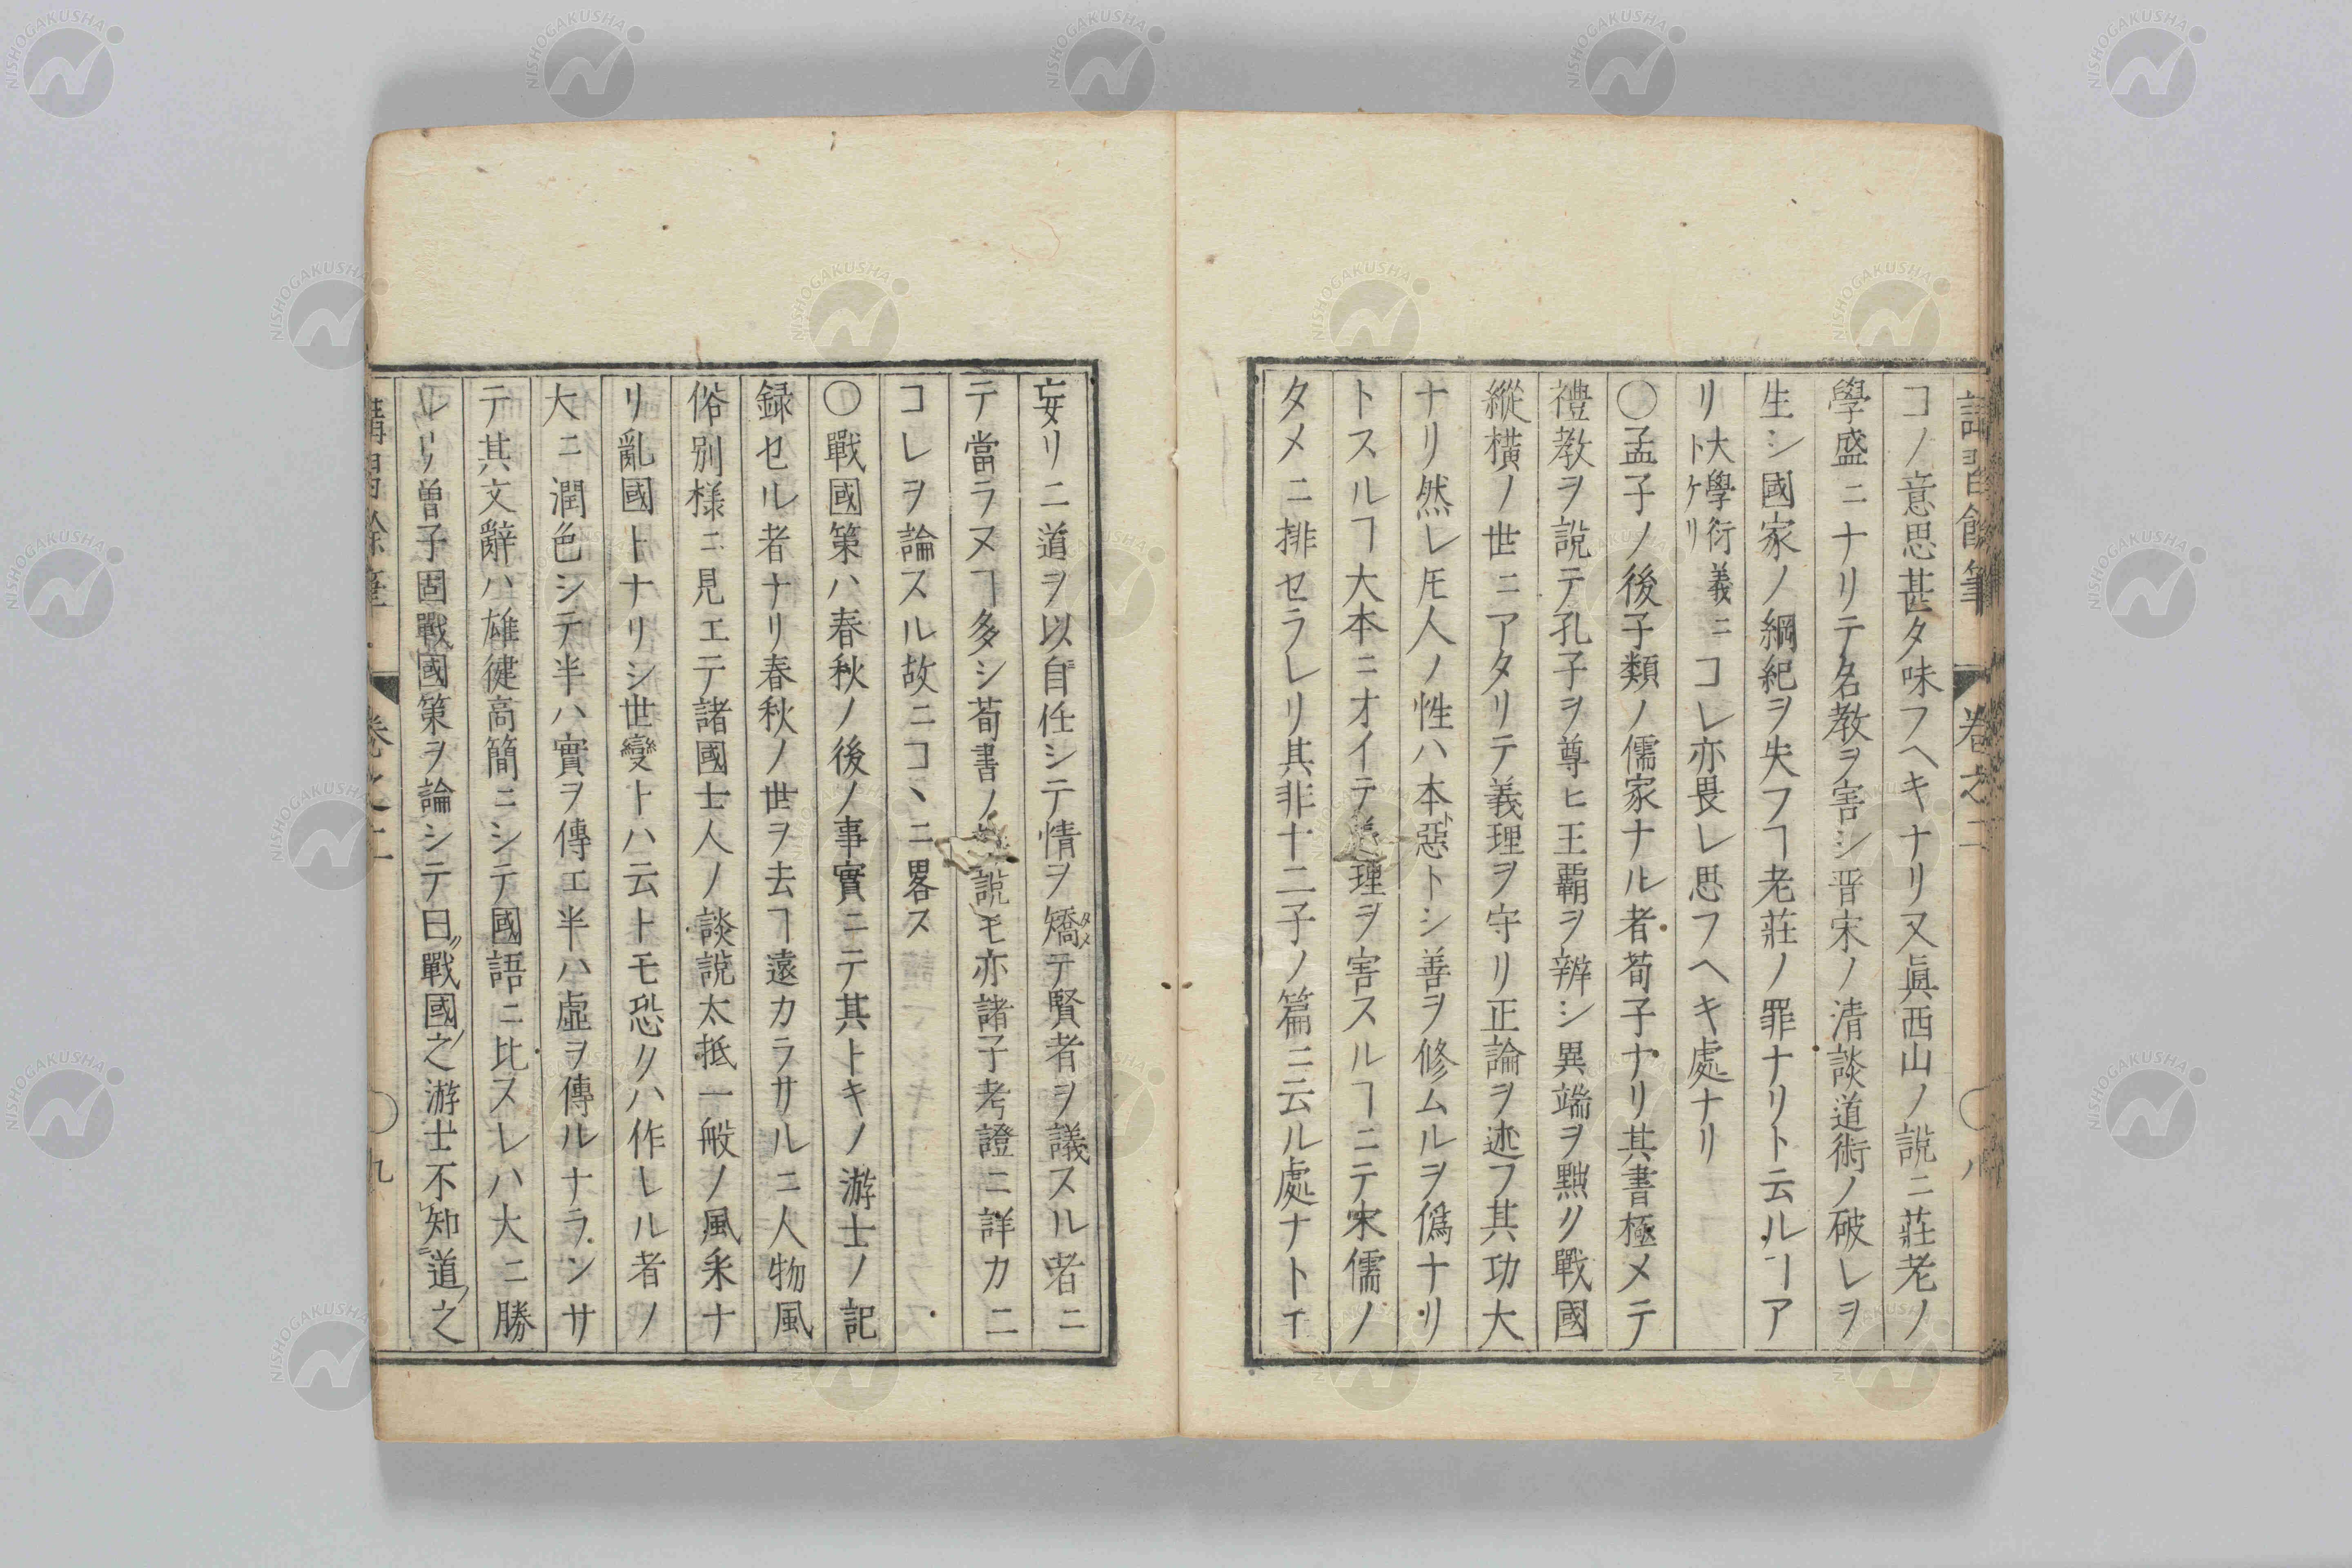 コノ意思甚タ味フヘキナリ又眞西山ノ說ニ莊老ノ
學盛ニナリテ名教ヲ害シ晋宋ノ清談道術ノ破レヲ
生シ國家ノ綱紀ヲ失フヿ老莊ノ罪ナリト云ルヿア
リ大學衍義ニトケリコレ亦畏レ思フヘキ處ナリ
〇孟子ノ後子類ノ儒家ナル者荀子ナリ其書極メテ
禮教ヲ說テ孔子ヲ尊ヒ王覇ヲ辨シ異端ヲ黜ク戰國
縱橫ノ世ニアタリテ義理ヲ守リ正論ヲ述フ其功大
ナリ然レ𪜈人ノ性ハ本ト惡トシ善ヲ修ムルヲ僞ナリ
トスルヿ大本ニオイテ義理ヲ害スルヿニテ宋儒ノ
タメニ排セラレリ其非十二子ノ篇ニ云ル處ナトイ
妄リニ道ヲ以自任シテ情ヲ矯タメテ賢者ヲ議スル者ニ
テ當ラヌヿ多シ荀書ノ說モ亦諸子考證ニ詳カニ
コレヲ論スル故ニコヽニ畧ス
〇戰國策ハ春秋ノ後ノ事實ニテ其トキノ游士ノ記
録セル者ナリ春秋ノ世ヲ去ヿ遠カラサルニ人物風
俗別樣ニ見エテ諸國士人ノ談說太抵一般ノ風釆ナ
リ亂國トナリシ世變トハ云トモ恐クハ作レル者ノ
大ニ潤色シテ半ハ實ヲ傳エ半ハ虛ヲ傳ルナランサ
テ其文辭ハ雄健高簡ニシテ國語ニ比スレハ大ニ勝
レリ曾子固戰國策ヲ論シテ曰戰國之游士不知道之
卷之二
〇九